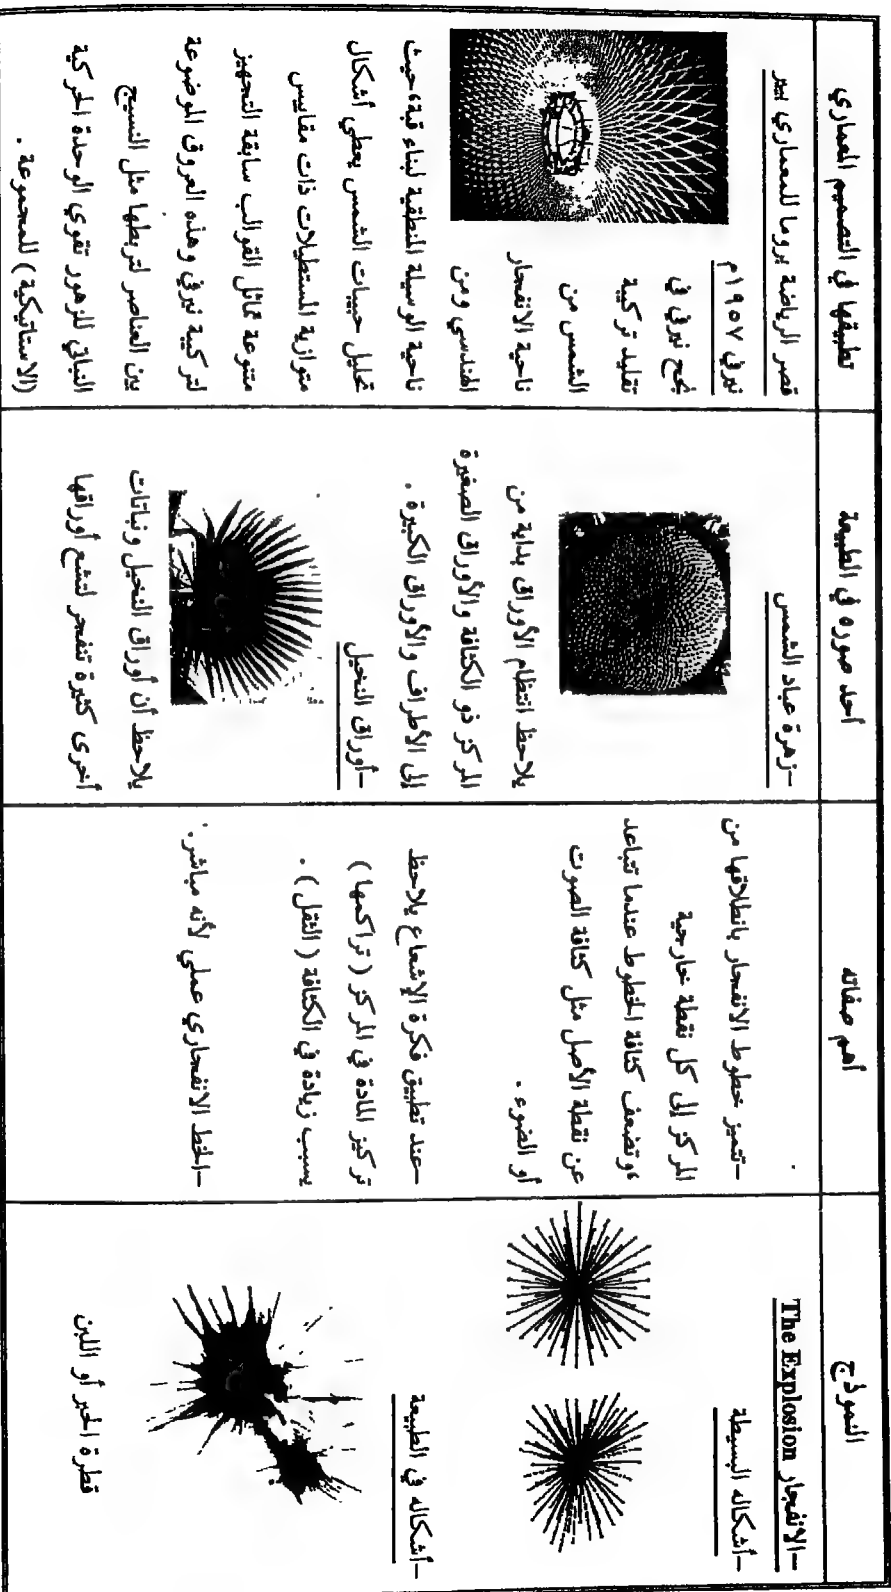 النموذج
–الانفجار The Explosion
–أشكاله البسيطة
–أشكاله في الطبيعة
قطرة الحبر أو اللبن
أهم صفاته
–تتميز خطوط الانفجار بانطلاقها من
المركز إلى كل نقطة خارجية
،وتضعف كثافة الخطوط عندما تتباعد
عن نقطة الأصل مثل كثافة الصوت
أو الضوء .
–عند تطبيق فكرة الإشعاع يلاحظ
تركيز المادة في المركز ( تراكمها )
يسبب زيادة في الكثافة ( الثقل ) .
–الخط الانفجاري عملي لأنه مباشر.
أحد صوره في الطبيعة
–زهرة عباد الشمس
يلاحظ انتظام الأوراق بداية من
المركز ذو الكثافة والأوراق الصغيرة
إلى الأطراف والأوراق الكبيرة .
–أوراق النخيل
يلاحظ أن أوراق النخيل ونباتات
أخرى كثيرة تنفجر لتشع أوراقها
تطبيقها في التصميم المعماري
قصر الرياضة بروما للمعماري بيير
نيرفي ١٩٥٧م
نجح نيرفي في
تقليد تركيبة
الشمس من
ناحية الانفجار
الهندسي ومن
ناحية الوسيلة المنطقية لبناء قبة،حيث
تحليل حبيبات الشمس يعطي أشكال
متوازية المستطيلات ذات مقاييس
متنوعة تماثل القوالب سابقة التجهيز
لتركيبة نيرفي وهذه العروق الموضوعة
بين العناصر لتربطها مثل النسيج
النباتي للزهور تقوي الوحدة الحركية
(الاستاتيكية ) للمجموعة .